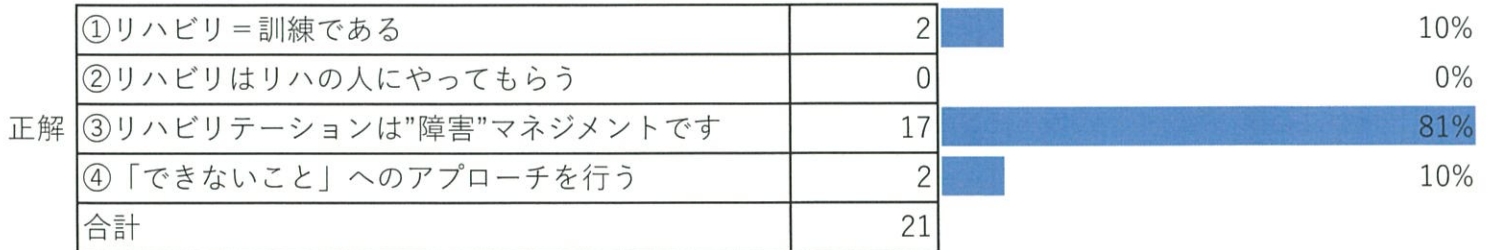 ①リハビリ＝訓練である 2 10%
②リハビリはリハの人にやってもらう 0 0%
正解 ③リハビリテーションは”障害”マネジメントです 17 81%
④「できないこと」へのアプローチを行う 2 10%
合計 21